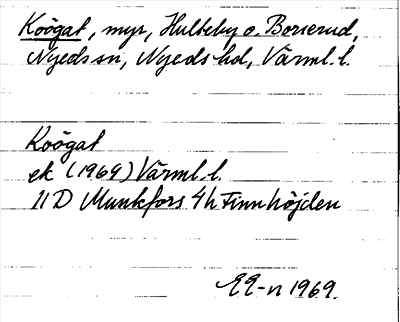 Koögat, myr, Hulteby o. Borserud,
Nyeds sn, Nyeds hd, Värml. l.
Koögat
ek (1969) Värml. l.
11D Munkfors 4h Finnhöjden
EE-n 1969.